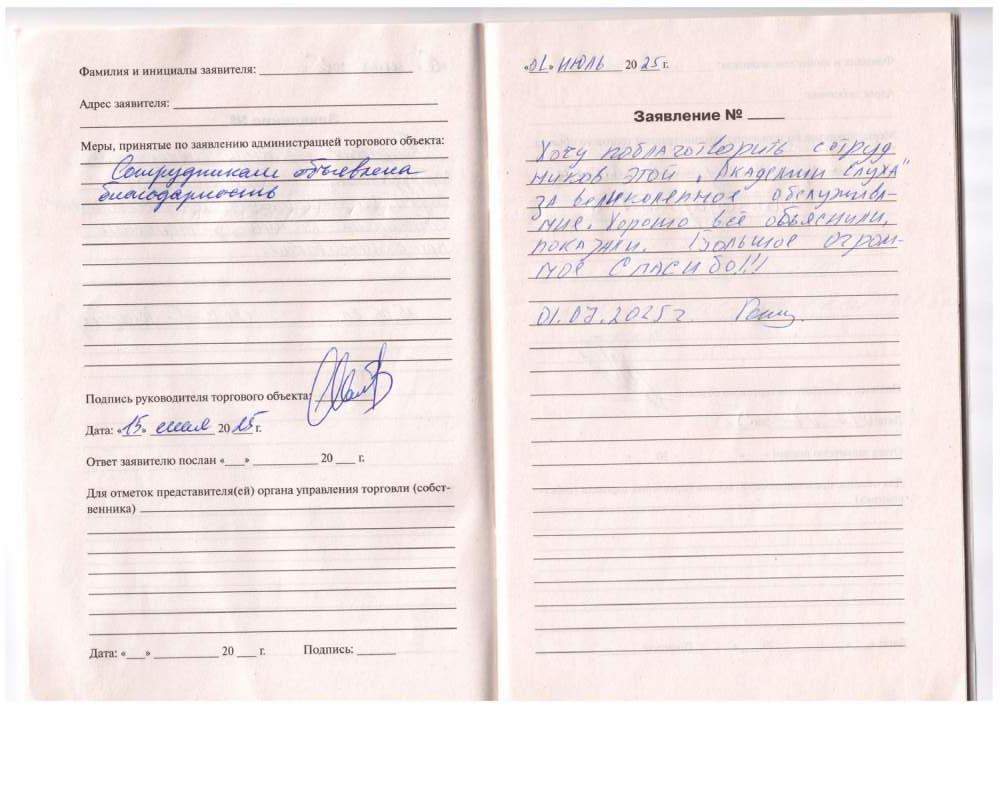 Фамилия и инициалы заявителя:
Адрес заявителя:
Меры, принятые по заявлению администрацией торгового объекта:
Сотрудникам объявлена
благодарность
Подпись руководителя торгового объекта:
Дата: «15» 20 25 г.
Ответ заявителю послан «___» ______ 20 ___ г.
Для отметок представителя(ей) органа управления торговли (собст-
венника)
Дата: «___» ______ 20 ___ г. Подпись: ______
«01» ИЮЛЬ 20 25 г.
Заявление № ____
Хочу поблаготворить сотруд
ников этой „Академии Слуха"
за великолепное обслужива-
ние. Хорошо всё объяснили,
показали. Большое огром-
ное Спасибо!!!
01.07.2025 г.